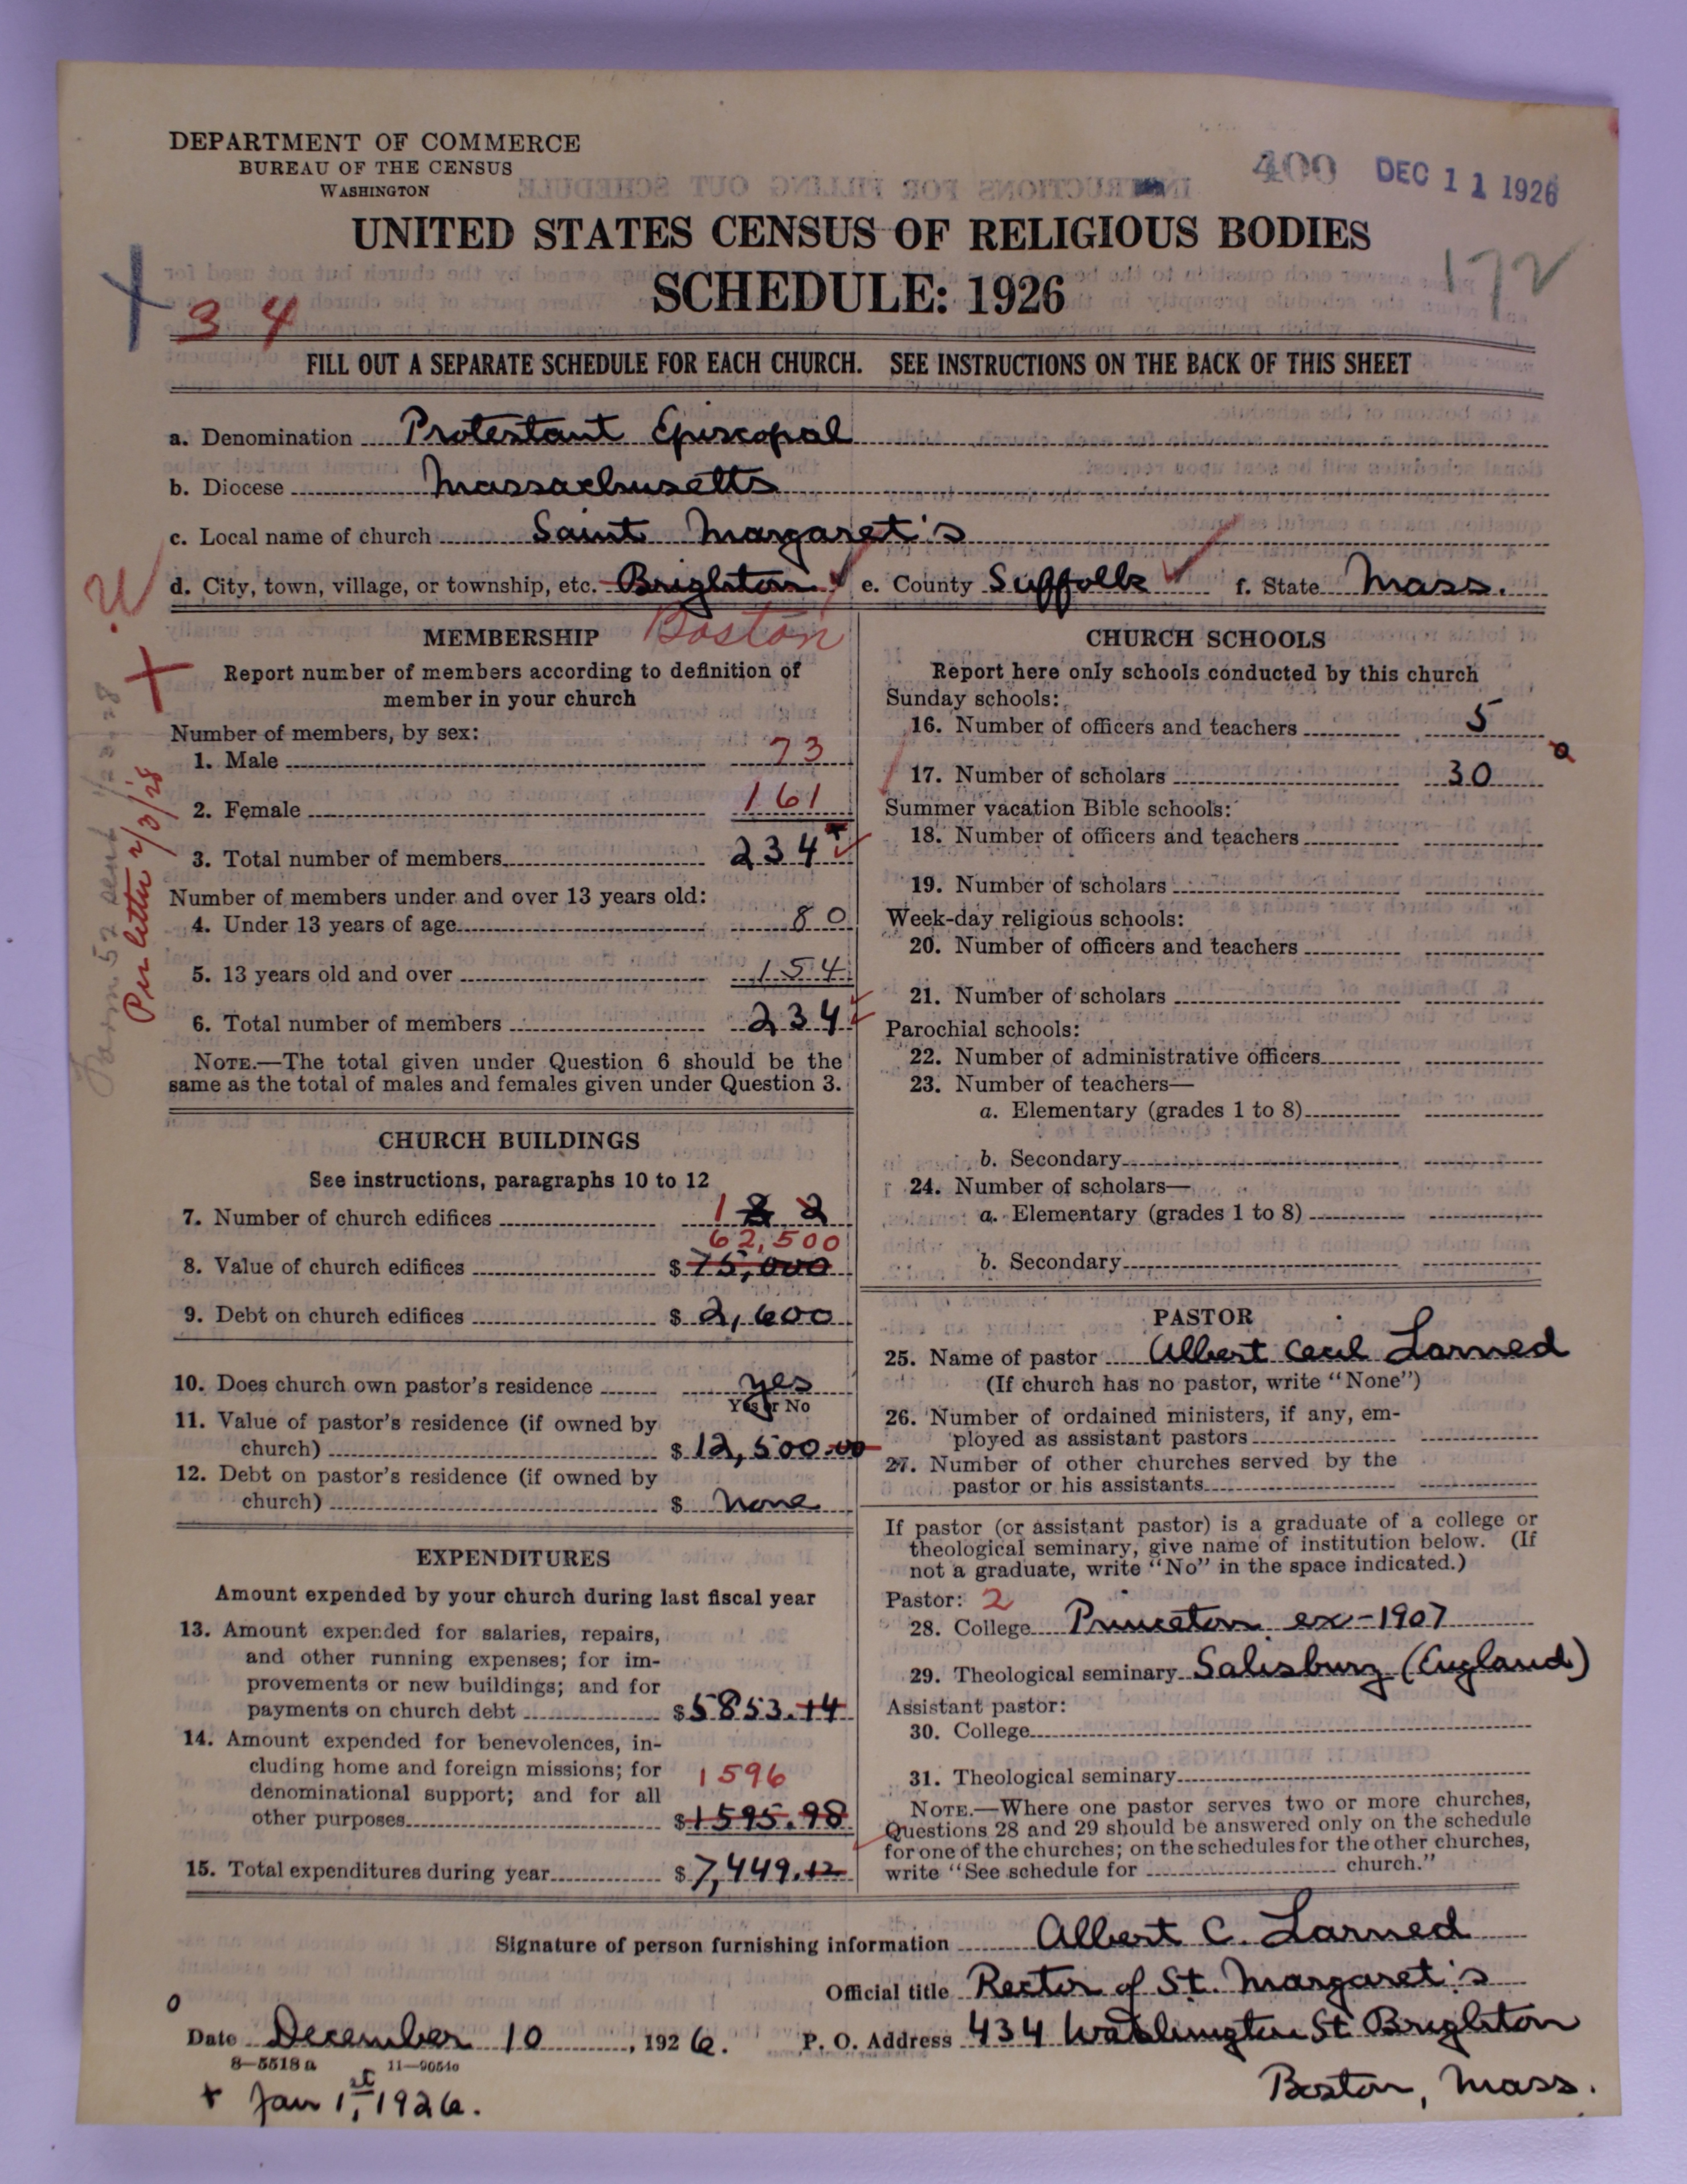 DEPARTMENT OF COMMERCE
BUREAU OF THE CENSUS
WASHINGTON
400 DEC 11 1926
UNITED STATES CENSUS OF RELIGIOUS BODIES
SCHEDULE: 1926
172
34
FILL OUT A SEPARATE SCHEDULE FOR EACH CHURCH. SEE INSTRUCTIONS ON THE BACK OF THIS SHEET
a. Denomination Protestant Episcopal
b. Diocese Massachusetts
c. Local name of church Saint Margaret's
d. City, town, village, or township, etc. Brighton e. County Suffolk f. State Mass.
Boston
Form 52 sent
Per letter
MEMBERSHIP
Report number of members according to definition of
member in your church
Number of members, by sex:
1. Male 73
2. Female 161
3. Total number of members 234
Number of members under and over 13 years old:
4. Under 13 years of age 80
5. 13 years old and over 154
6. Total number of members 234
NOTE.—The total given under Question 6 should be the
same as the total of males and females given under Question 3.
CHURCH BUILDINGS
See instructions, paragraphs 10 to 12
7. Number of church edifices 1 2 2
62,500
8. Value of church edifices $ 75,000
9. Debt on church edifices $ 2,600
10. Does church own pastor's residence yes
Yes or No
11. Value of pastor's residence (if owned by
church) $ 12,500.00
12. Debt on pastor's residence (if owned by
church) $ none
EXPENDITURES
Amount expended by your church during last fiscal year
13. Amount expended for salaries, repairs,
and other running expenses; for im-
provements or new buildings; and for
payments on church debt $ 5853.14
14. Amount expended for benevolences, in-
cluding home and foreign missions; for
denominational support; and for all
1596
other purposes $ 1595.98
15. Total expenditures during year $ 7,449.12
CHURCH SCHOOLS
Report here only schools conducted by this church
Sunday schools:
16. Number of officers and teachers 5
a
17. Number of scholars 30
Summer vacation Bible schools:
18. Number of officers and teachers
19. Number of scholars
Week-day religious schools:
20. Number of officers and teachers
21. Number of scholars
Parochial schools:
22. Number of administrative officers
23. Number of teachers—
a. Elementary (grades 1 to 8)
b. Secondary
24. Number of scholars—
a. Elementary (grades 1 to 8)
b. Secondary
PASTOR
25. Name of pastor Albert Cecil Larned
(If church has no pastor, write "None")
26. Number of ordained ministers, if any, em-
ployed as assistant pastors
27. Number of other churches served by the
pastor or his assistants
If pastor (or assistant pastor) is a graduate of a college or
theological seminary, give name of institution below. (If
not a graduate, write "No" in the space indicated.)
Pastor: 2
28. College Princeton ex-1907
29. Theological seminary Salisbury (England)
Assistant pastor:
30. College
31. Theological seminary
NOTE.—Where one pastor serves two or more churches,
Questions 28 and 29 should be answered only on the schedule
for one of the churches; on the schedules for the other churches,
write "See schedule for church."
Signature of person furnishing information Albert C. Larned
Official title Rector of St. Margaret's
Date December 10, 1926. P. O. Address 434 Washington St Brighton
8-5518a 11-9054a
+ Jan 1st, 1926.
Boston, Mass.